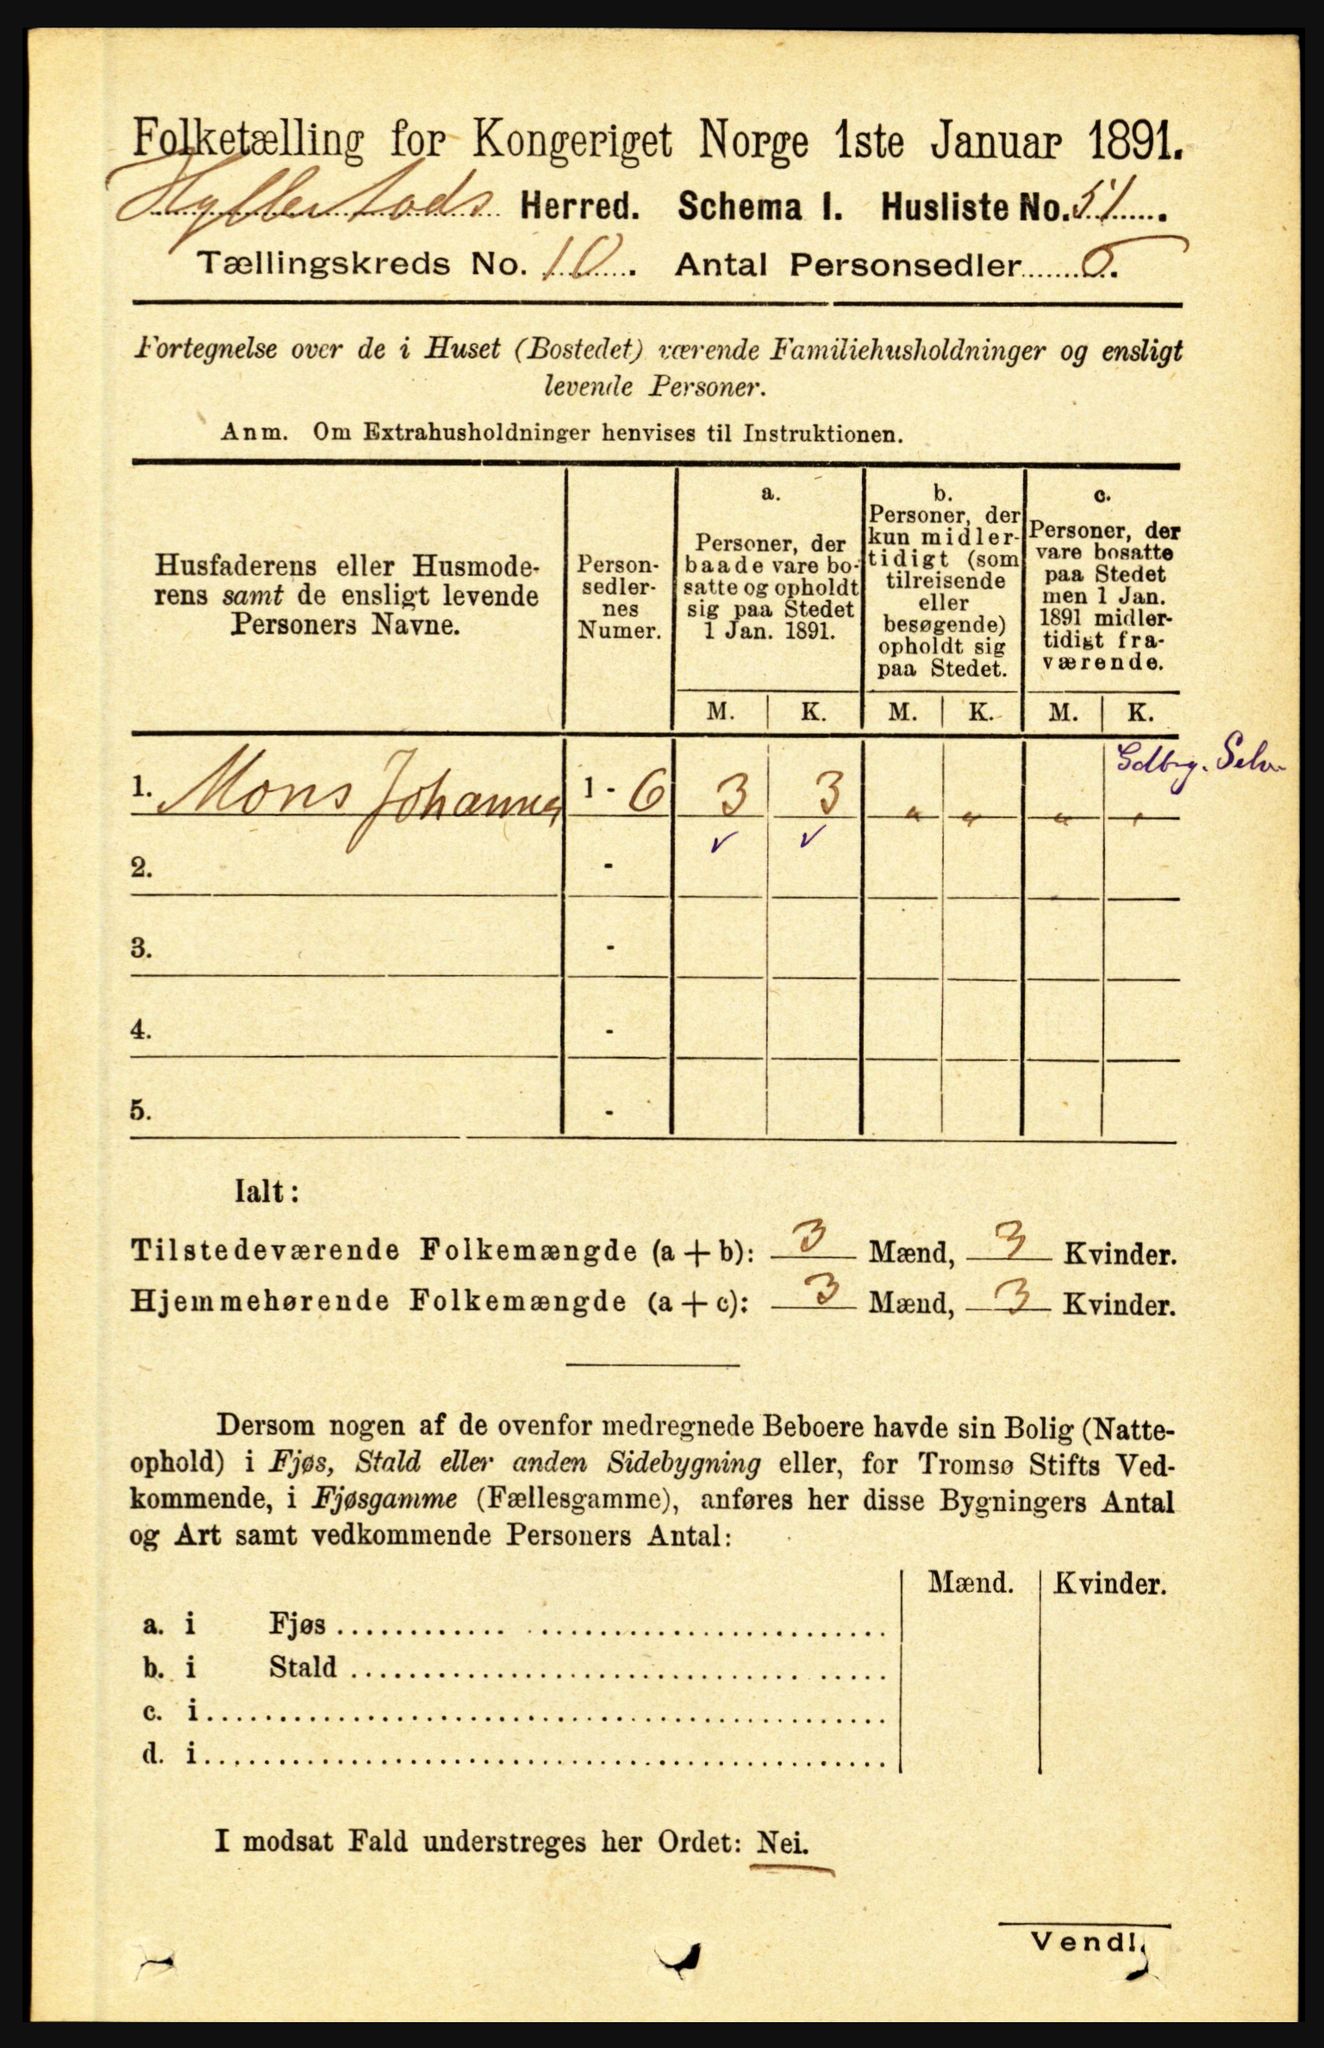 Folketælling for Kongeriget Norge 1ste Januar 1891.
Hyllestads Herred. Schema I. Husliste No. 51.
Tællingskreds No. 10. Antal Personsedler 6.
Fortegnelse over de i Huset (Bostedet) værende Familiehusholdninger og ensligt
levende Personer.
Anm. Om Extrahusholdninger henvises til Instruktionen.
Husfaderens eller Husmode-
rens samt de ensligt levende
Personers Navne.
Person-
sedler-
nes
Numer.
a.
Personer, der
baade vare bo-
satte og opholdt
sig paa Stedet
1 Jan. 1891.
b.
Personer, der
kun midler-
tidigt (som
tilreisende
eller
besøgende)
opholdt sig
paa Stedet.
c.
Personer, der
vare bosatte
paa Stedet
men 1 Jan.
1891 midler-
tidigt fra-
værende.
M. K. M. K. M. K.
Gdbrg. Selv
1. Mons Johannes 1 - 6 3 3 " " " "
2. -
3. -
4. -
5. -
Ialt:
Tilstedeværende Folkemængde (a + b): 3 Mænd, 3 Kvinder.
Hjemmehørende Folkemængde (a + c): 3 Mænd, 3 Kvinder.
Dersom nogen af de ovenfor medregnede Beboere havde sin Bolig (Natte-
ophold) i Fjøs, Stald eller anden Sidebygning eller, for Tromsø Stifts Ved-
kommende, i Fjøsgamme (Fællesgamme), anføres her disse Bygningers Antal
og Art samt vedkommende Personers Antal:
Mænd. Kvinder.
a. i Fjøs
b. i Stald
c. i
d. i
I modsat Fald understreges her Ordet: Nei.
Vend!